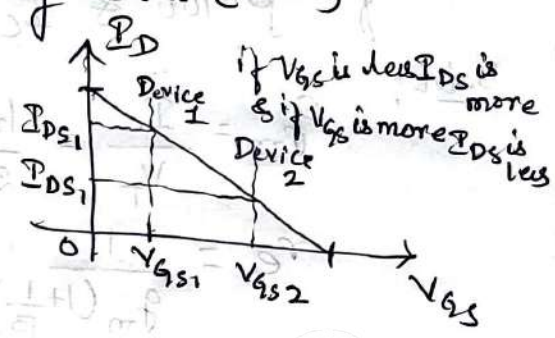 I_D
if V_GS is less I_DS is
more
& if V_GS is more I_DS is
less
Device
1
Device
2
I_DS1
I_DS1
0
V_GS1
V_GS2
V_GS